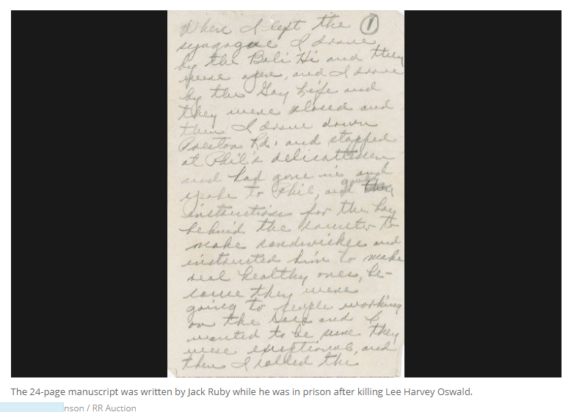 Where I left the ①
synagogue I drove
by the Bali Hi and they
were open, and I drove
by the Gay Life and
they were closed and
then I drove down
Preston Rd. and stopped
at Phil's delicatessen
and had gone in and
spoke to Phil, and gave
instructions for the boy
behind the counter to
make sandwiches and
instructed him to make
real healthy ones, be-
cause they were
going to people working
on the and I
wanted to be sure they
were exceptional, and
then I called the
The 24-page manuscript was written by Jack Ruby while he was in prison after killing Lee Harvey Oswald.
nson / RR Auction